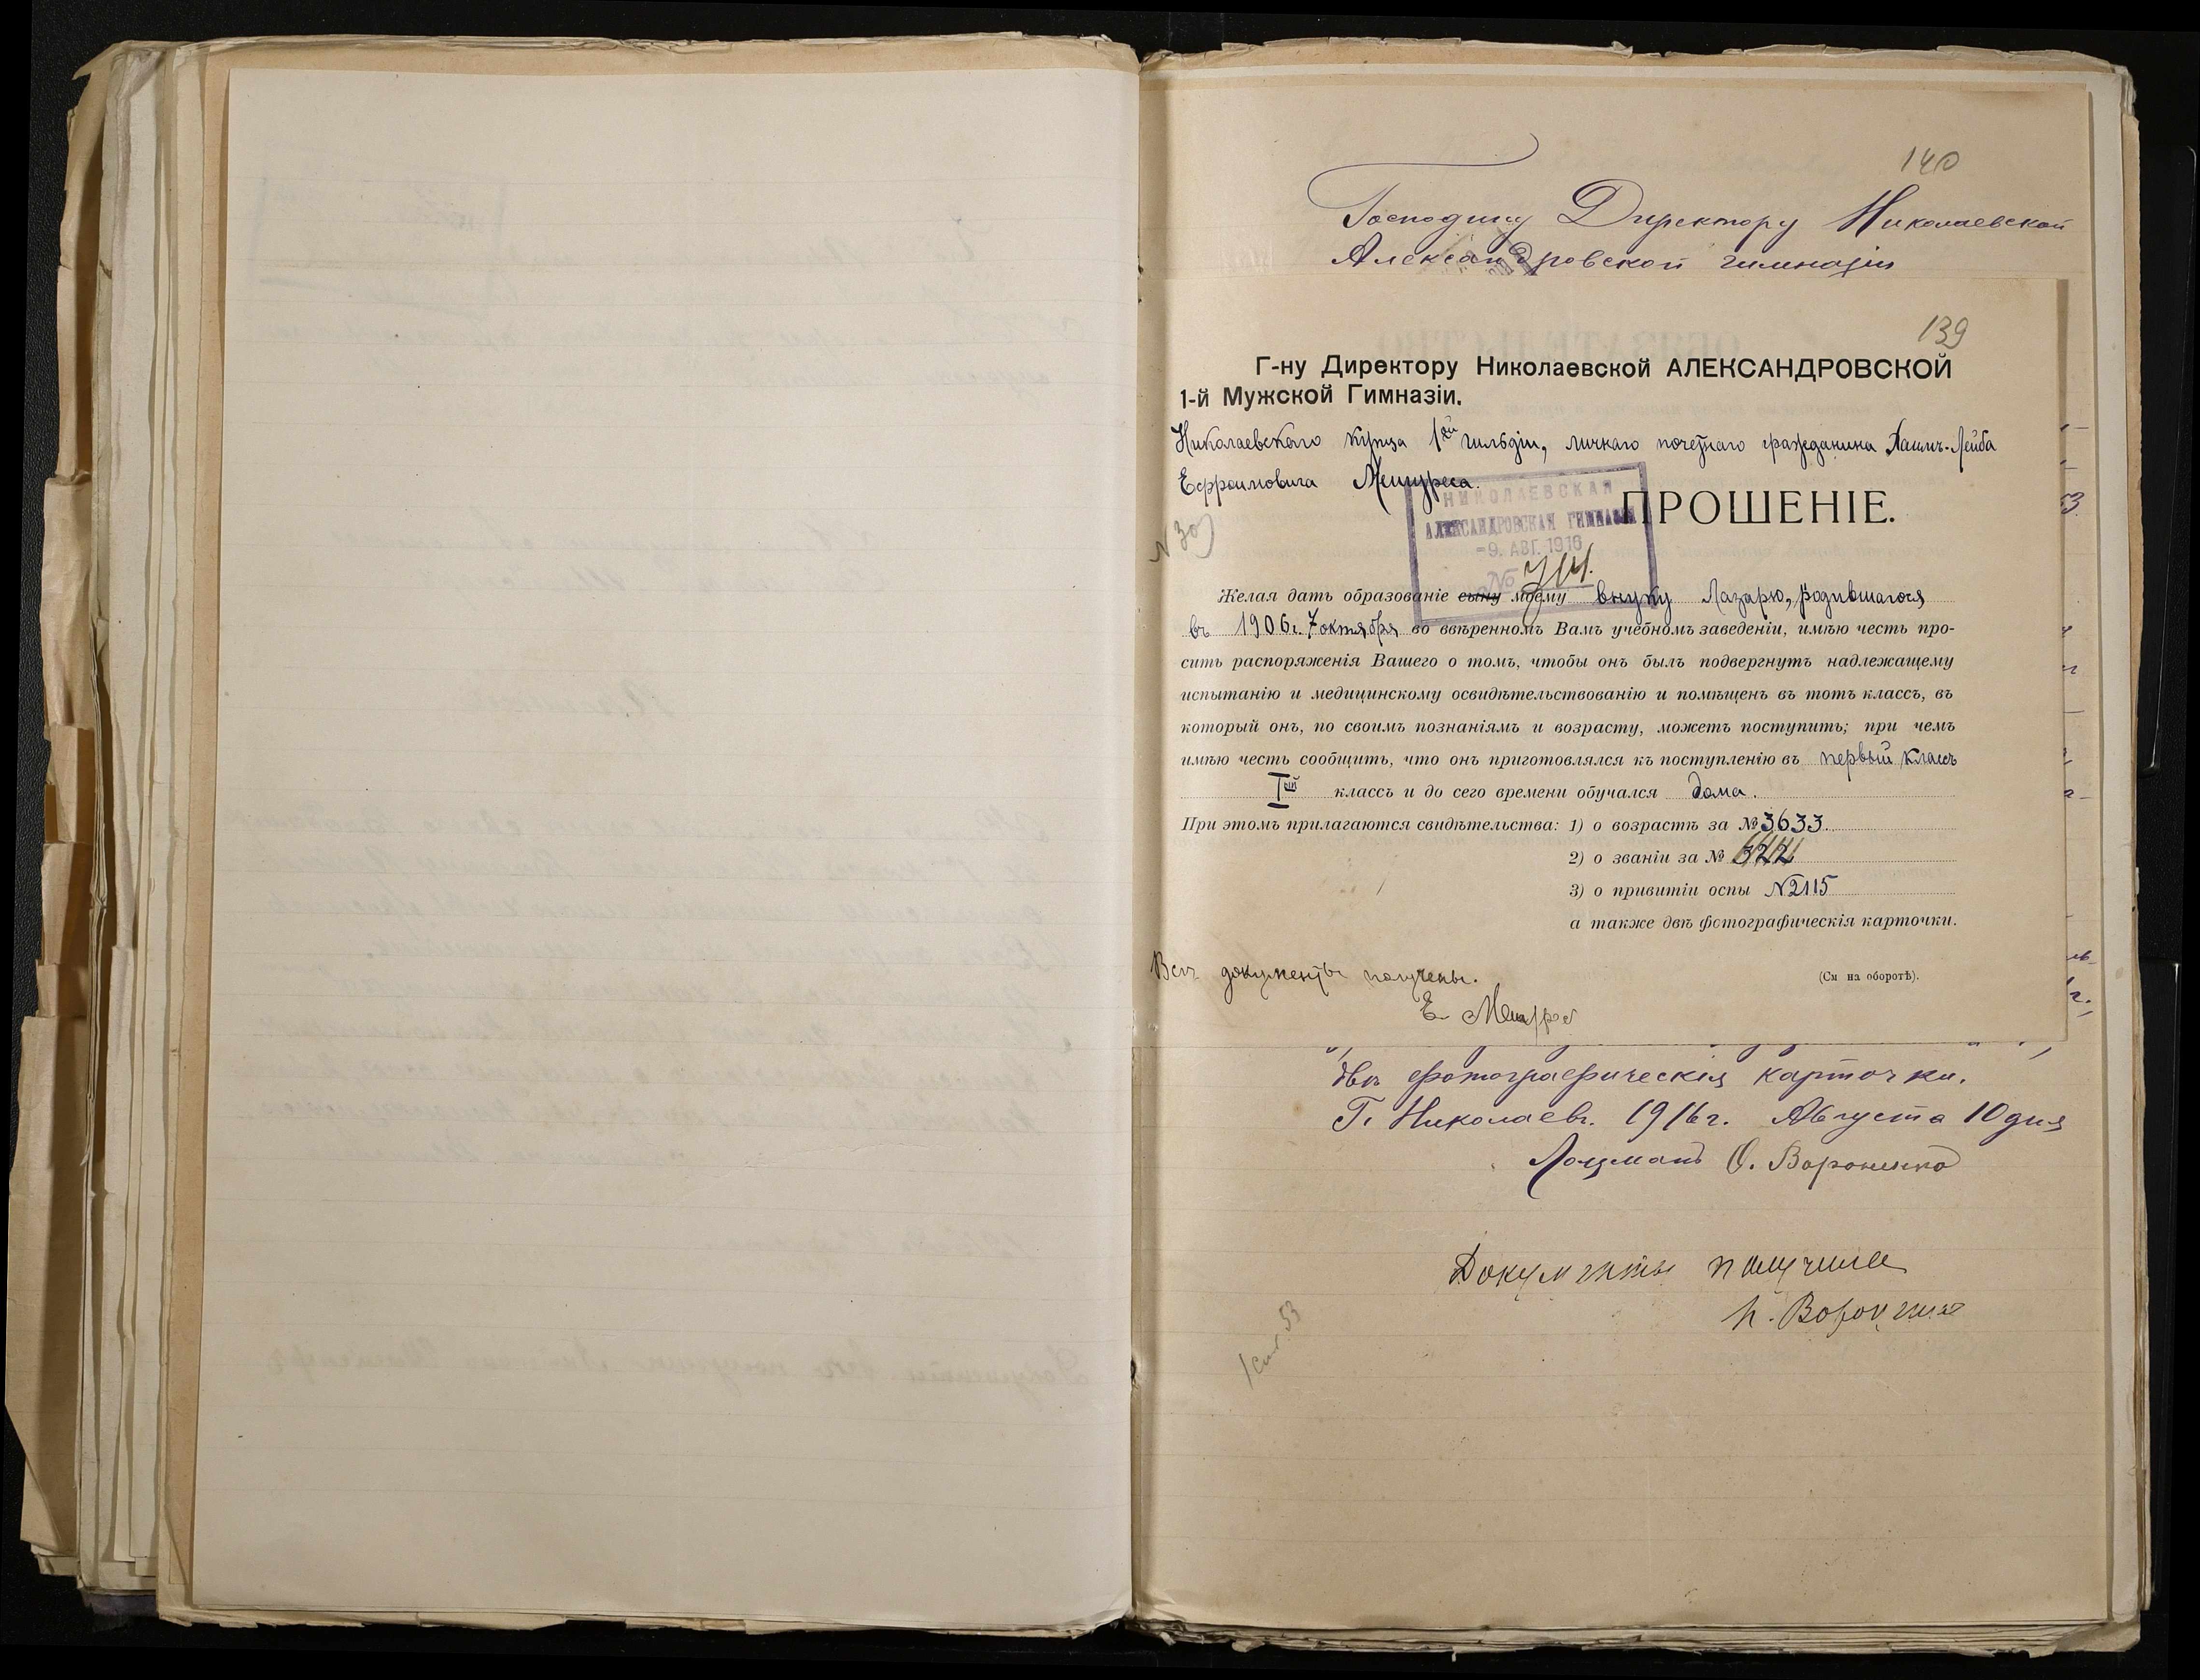 140
Господину Директору Николаевской
Александровской гимназіи
139
Г-ну Директору Николаевской АЛЕКСАНДРОВСКОЙ
1-й Мужской Гимназіи.
Николаевскаго купца 1ой гильдіи, личнаго почетнаго гражданина Хаимъ-Лейба
Ефроимовича Мешуреса.
ПРОШЕНІЕ.
НИКОЛАЕВСКАЯ
АЛЕКСАНДРОВСКАЯ ГИМНАЗІЯ
-9. АВГ. 1916
№
N 30
Желая дать образованіе сыну моему внуку Лазарю, родившагося
въ 1906г. 7 октября во ввѣренномъ Вамъ учебномъ заведеніи, имѣю честь про-
сить распоряженія Вашего о томъ, чтобы онъ былъ подвергнутъ надлежащему
испытанію и медицинскому освидѣтельствованію и помѣщенъ въ тотъ классъ, въ
который онъ, по своимъ познаніямъ и возрасту, можетъ поступить; при чемъ
имѣю честь сообщить, что онъ приготовлялся къ поступленію въ первый классъ
Iый классъ и до сего времени обучался дома.
При этомъ прилагаются свидѣтельства: 1) о возрастѣ за № 3633
2) о званіи за №
3) о привитіи оспы N2115
а также двѣ фотографическія карточки.
(См на оборотѣ).
Всѣ документы получены.
Е Мешурес
двѣ фотографическія карточки.
Г. Николаевъ. 1916 г. Августа 10 дня
Лоцманъ О. Вороненко
Документы получила
Вороненко
53